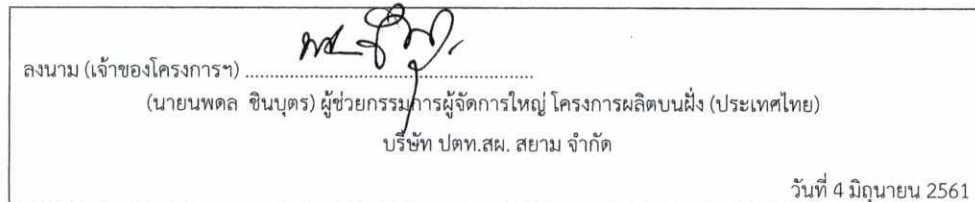 ลงนาม (เจ้าของโครงการฯ) ........................................................
(นายนพดล ชินบุตร) ผู้ช่วยกรรมการผู้จัดการใหญ่ โครงการผลิตบนฝั่ง (ประเทศไทย)
บริษัท ปตท.สผ. สยาม จำกัด
วันที่ 4 มิถุนายน 2561